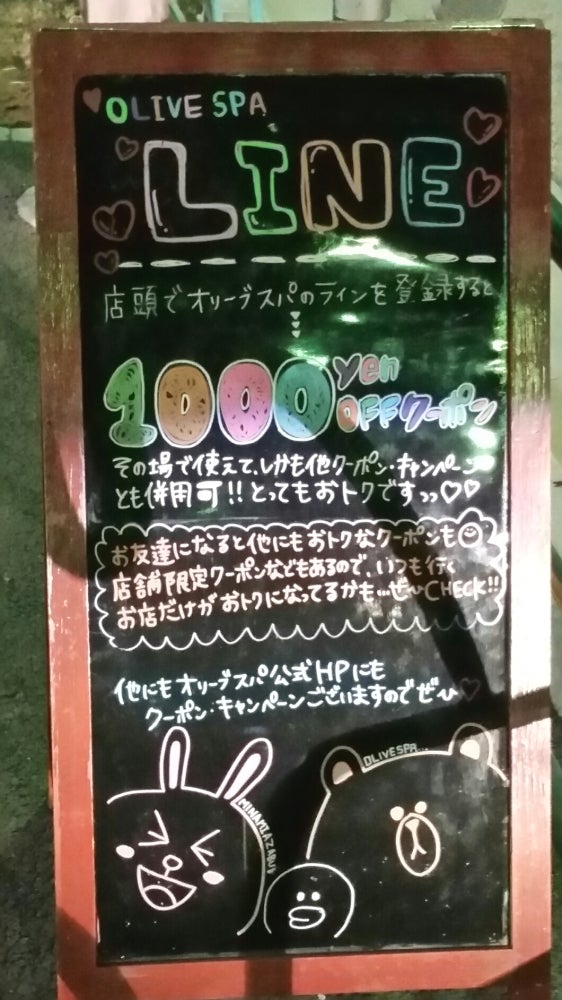 OLIVE SPA
LINE
店頭でオリーブスパのラインを登録すると
1000 yen
OFFクーポン
その場で使えて、しかも他クーポン・キャンペーン
とも併用可!!とってもおトクですっっ♡♡
お友達になると他にもおトクなクーポンも
店舗限定クーポンなどもあるので、いつも行く
お店だけがおトクになってるかも…ぜひCHECK!!
他にもオリーブスパ公式HPにも
クーポン・キャンペーンございますのでぜひ♡
OLIVESPA...
MINAMIAZABU